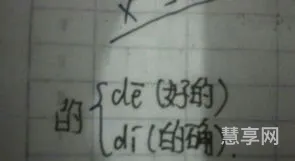 的{dē(好的)
dí(的确)
慧享网